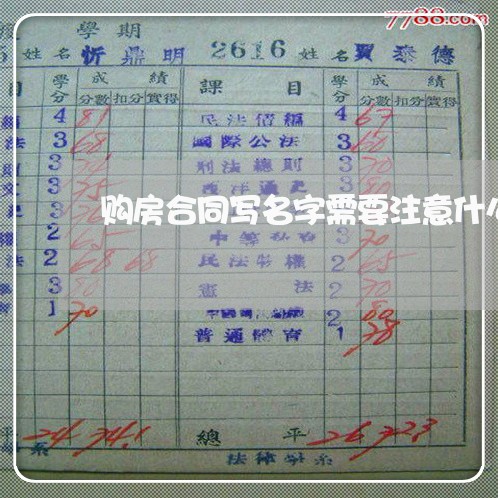 7788.com
學期
姓名 忻鼎明 2616 姓名 賈泰德
目 學分 成績 課目 學分 成績
分數 扣分 實得 分數 扣分 實得
4 81 民法債編 4 67
法 3 68 國際公法 3 60
3 刑法總則 3 70
文 3 75 西洋通史 3 80
购房合同写名字需要注意什么
2 65 3 70
法 2 68 68 民法物權 2 65
3 80 憲法 2 70
1 70 2 80
普通體育 1 78
平 24 74.1 總平 26 72.3
系 法律學系